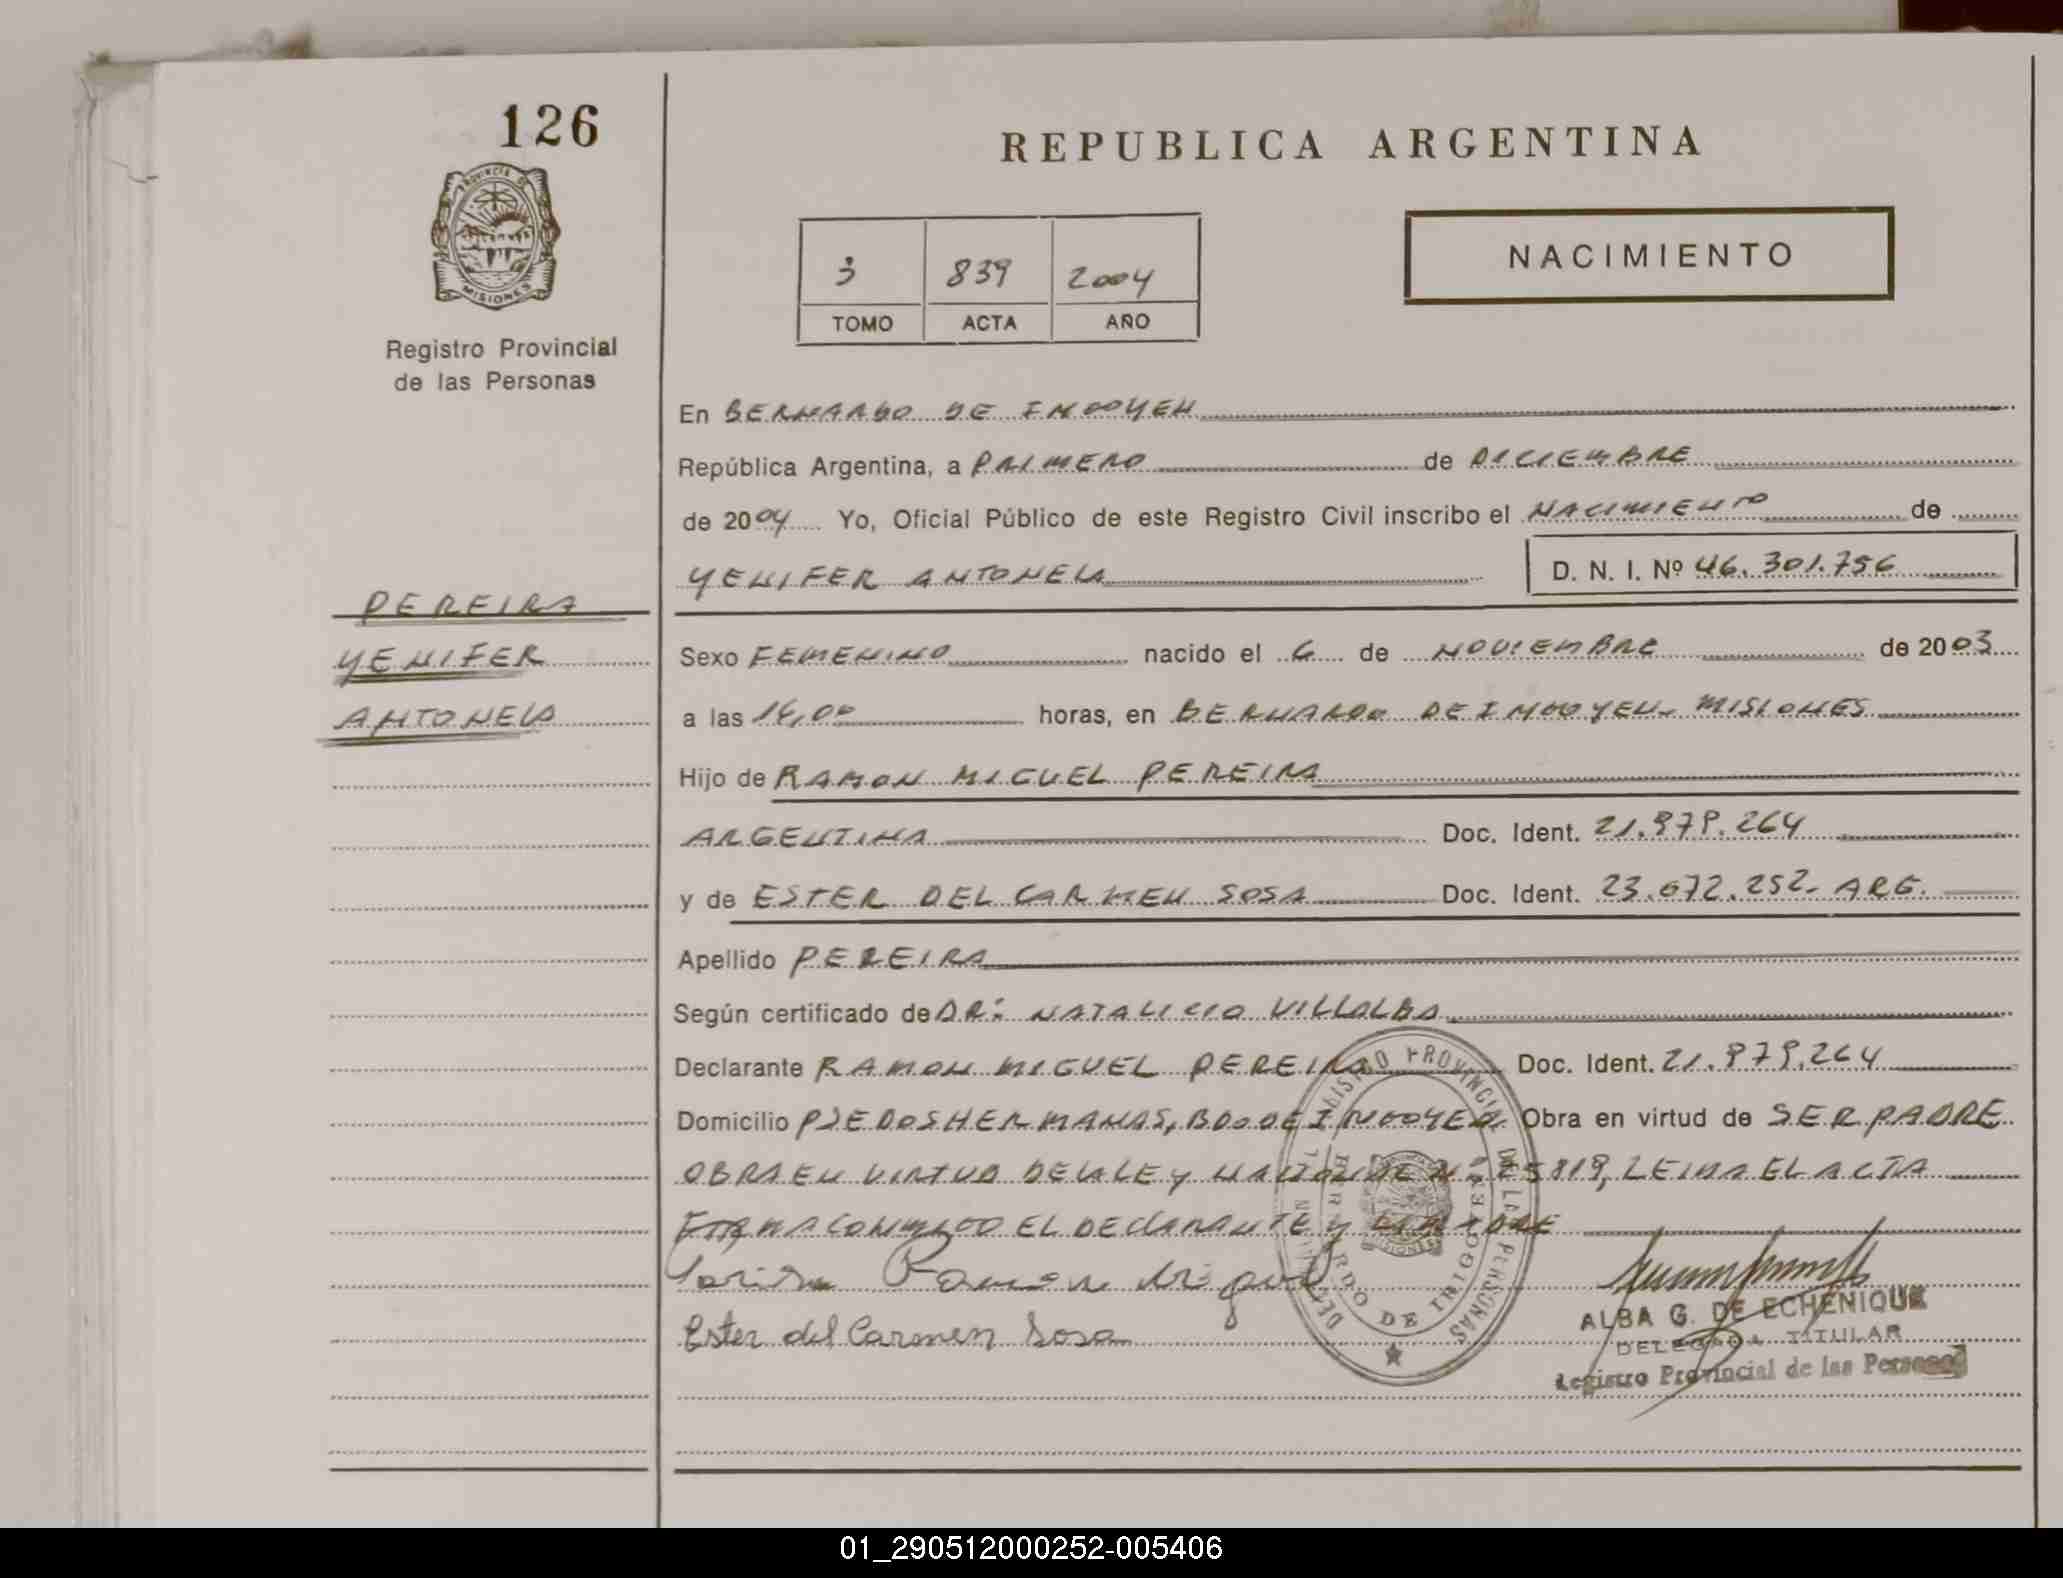 126
PROVINCIA DE
MISIONES
Registro Provincial
de las Personas
PEREIRA
YENIFER
ANTONELA
REPUBLICA ARGENTINA
NACIMIENTO
3 839 2004
TOMO ACTA AÑO
En BERNARDO DE IRIGOYEN
República Argentina, a PRIMERO de DICIEMBRE
de 2004 Yo, Oficial Público de este Registro Civil inscribo el NACIMIENTO de
YENIFER ANTONELA D. N. I. Nº 46.301.756
Sexo FEMENINO nacido el 6 de NOVIEMBRE de 2003
a las 16,00 horas, en BERNARDO DE IRIGOYEN- MISIONES
Hijo de RAMON MIGUEL PEREIRA
ARGENTINA Doc. Ident. 21.979.264
y de ESTER DEL CARMEN SOSA Doc. Ident. 23.672.252- ARG.
Apellido PEREIRA
Según certificado de DR: NATALICIO VILLALBA
Declarante RAMON MIGUEL PEREIRA Doc. Ident. 21.979.264
Domicilio PJE DOS HERMANAS, BDO DE IRIGOYEN Obra en virtud de SER PADRE
OBRA EN VIRTUD DE LA LEY NACIONAL N: 25819, LEIDA EL ACTA
FIRMA CONMIGO EL DECLARANTE Y LA MADRE
Ramon Miguel
Ester del Carmen Sosa
REGISTRO PROVINCIAL DE LAS PERSONAS
BERNARDO DE IRIGOYEN
MISIONES
ALBA G. DE ECHENIQUE
DELEGADA TITULAR
Registro Provincial de las Personas
01_290512000252-005406